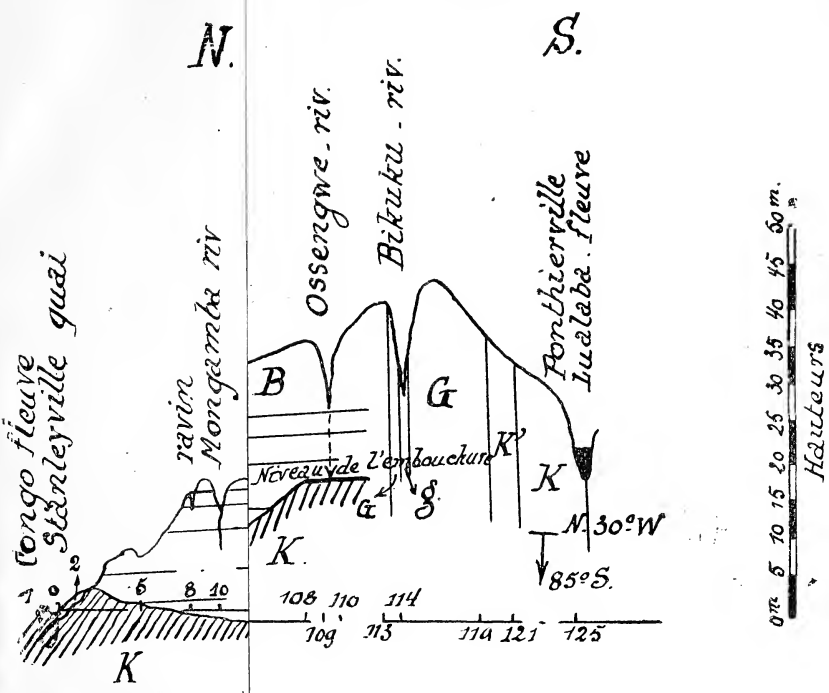 N.
S.
Congo fleuve
Stanleyville quai
ravin
Mongamba riv
Ossengwe - riv.
Bikuku - riv.
Ponthierville
Lualaba - fleuve
B
G
K'
K
Niveau de l'embouchure
G
g.
K.
N. 30° W
85° S.
1 0 2 5 8 10
108 109 110 113 114 119 121 125
K
0m 5 10 15 20 25 30 35 40 45 50 m.
Hauteurs